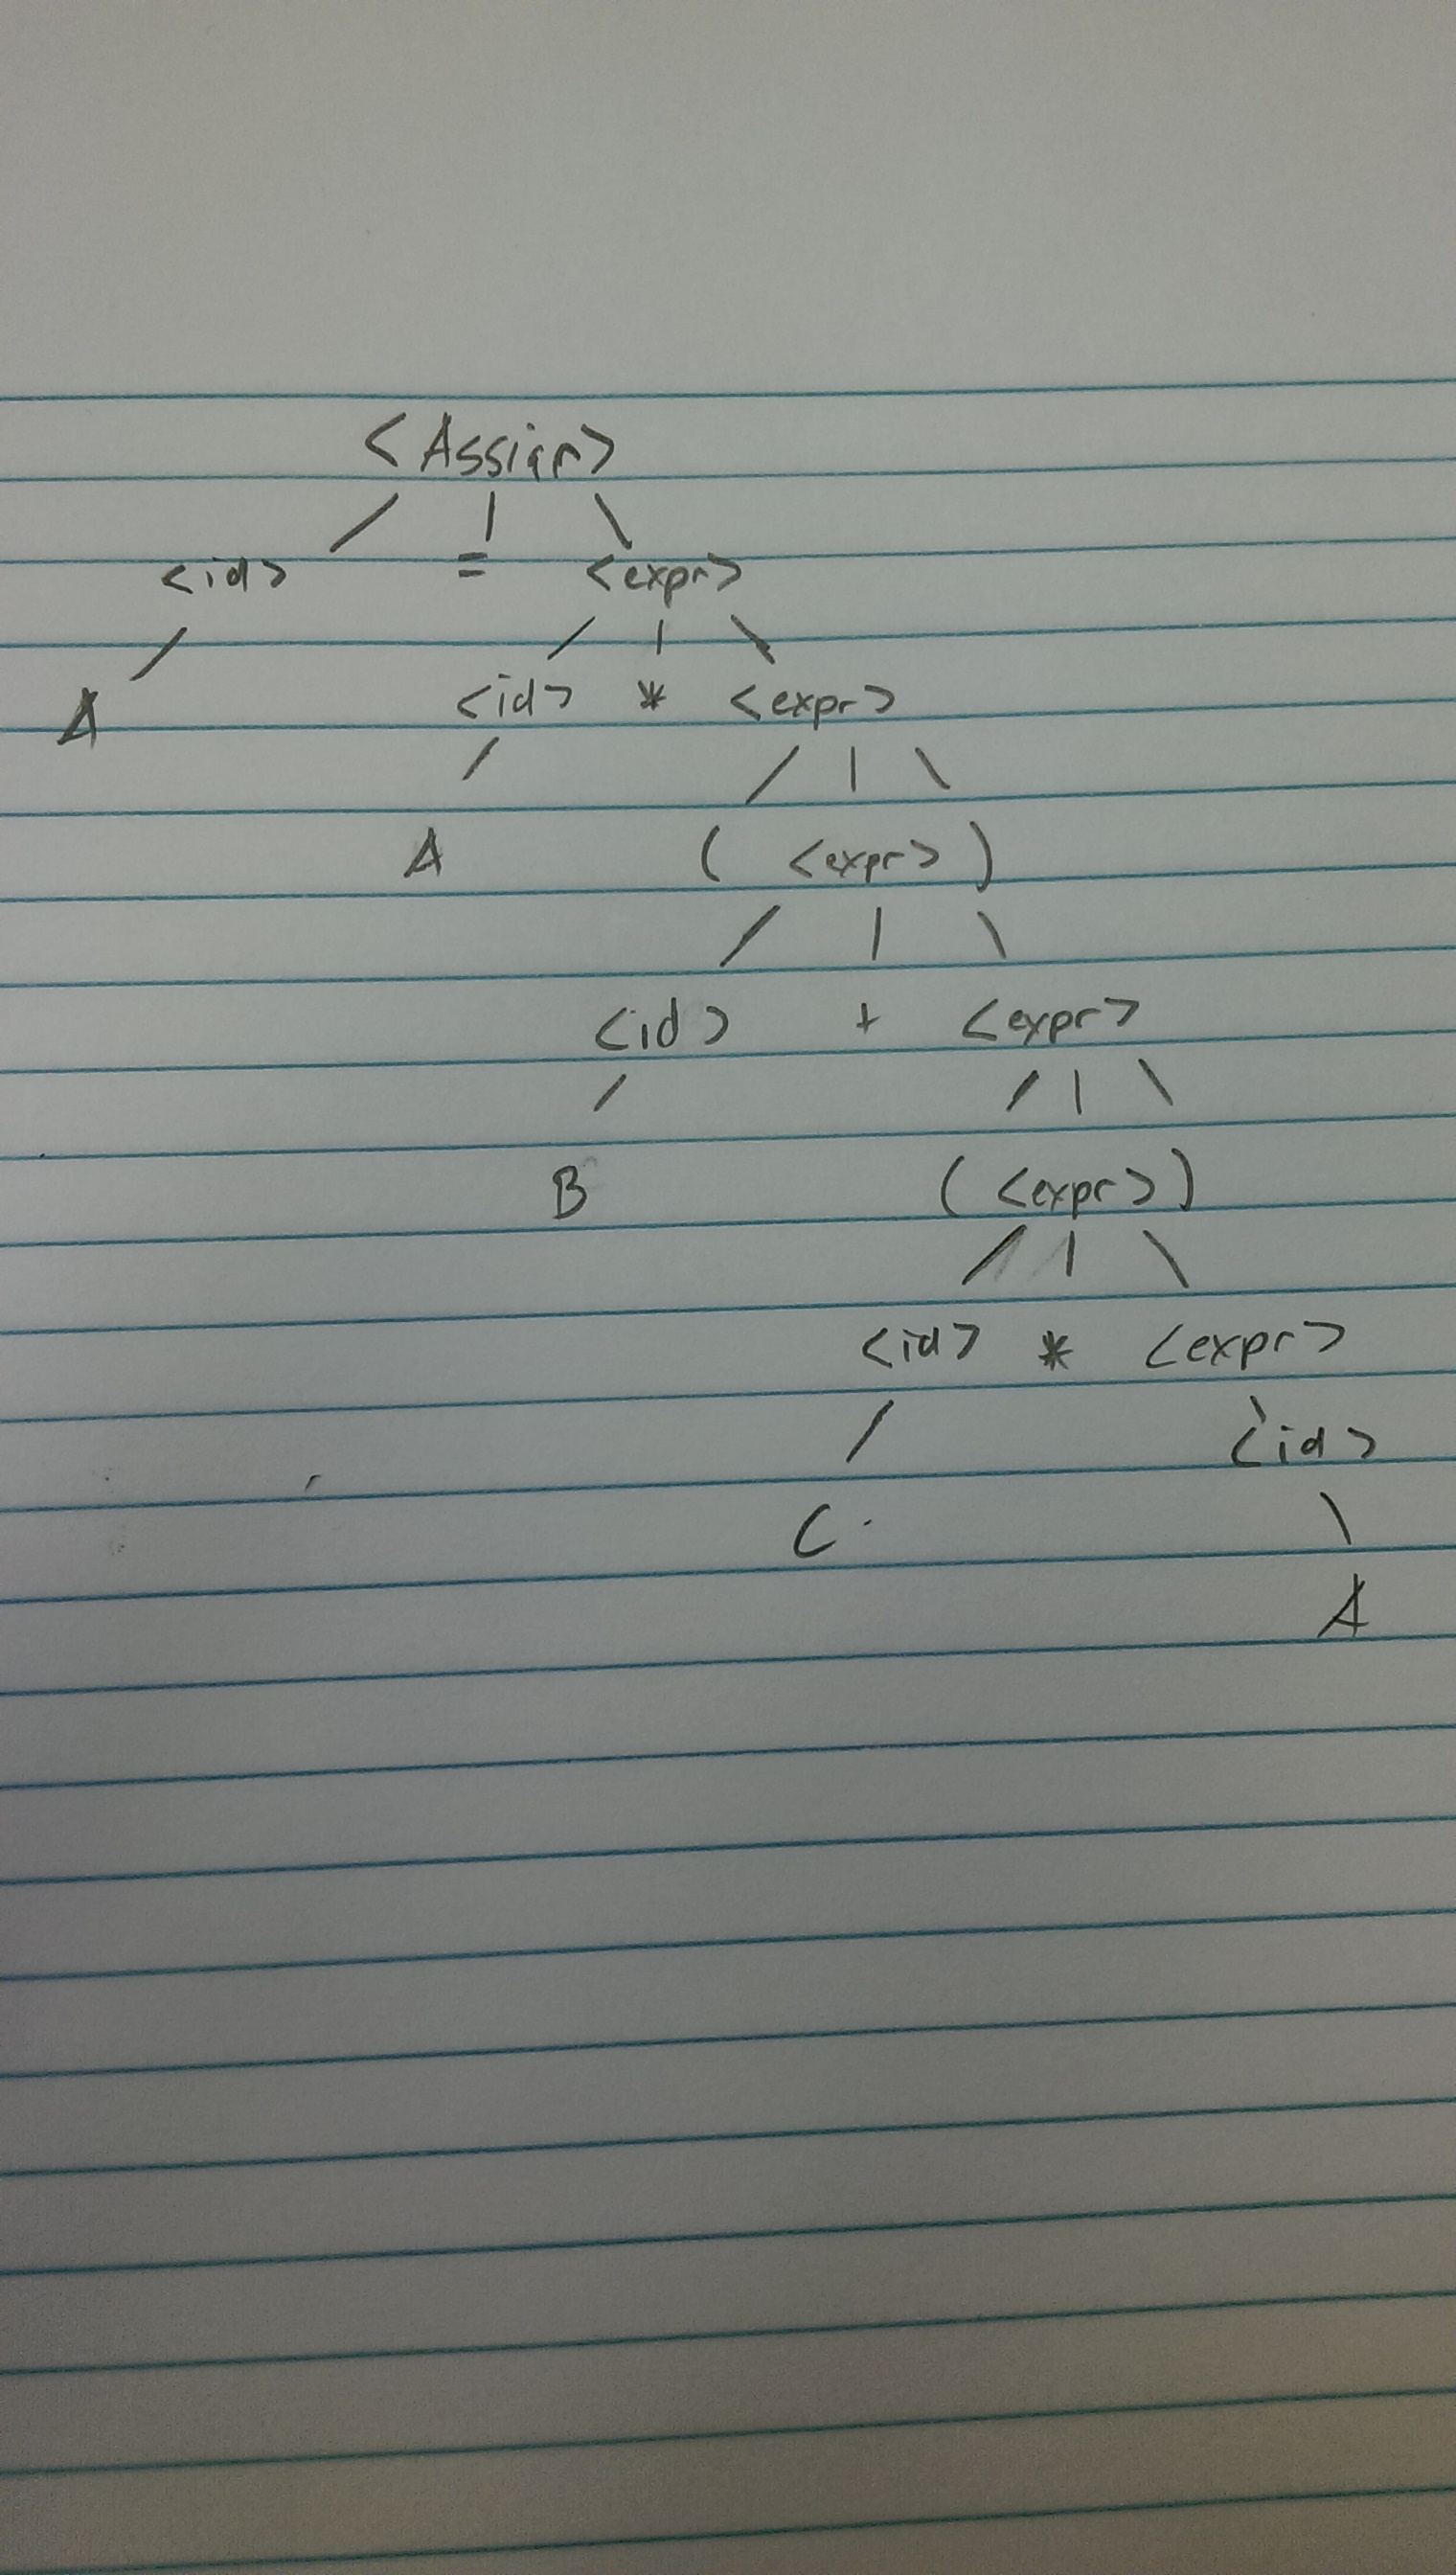 <Assign>
<id> = <expr>
A <id> * <expr>
A ( <expr> )
<id> + <expr>
B ( <expr> )
<id> * <expr>
<id>
C
A